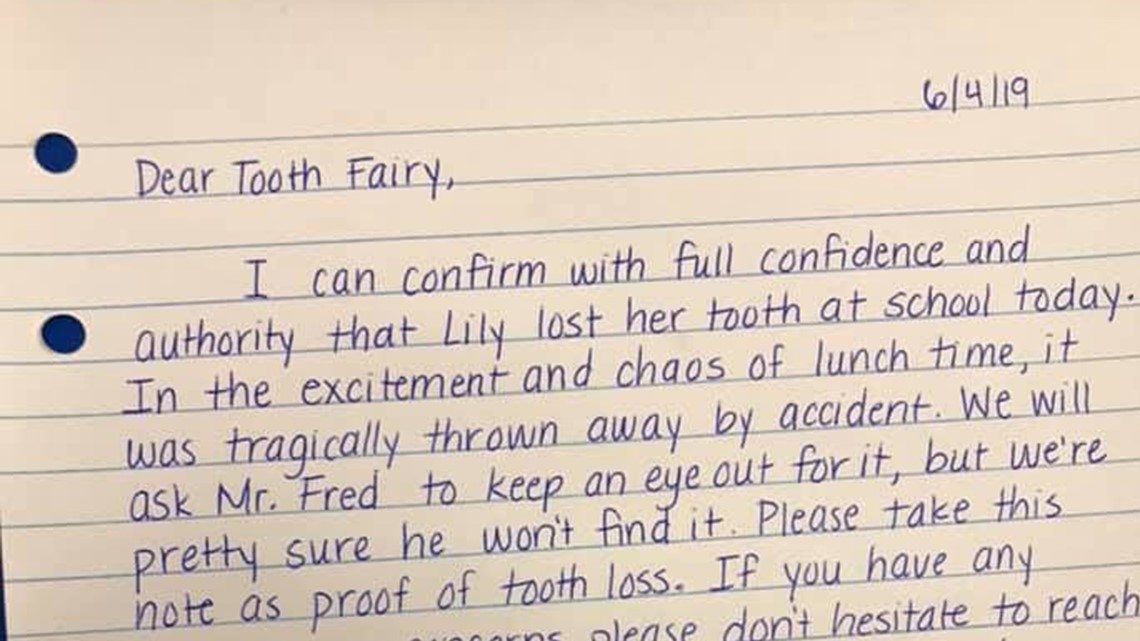 6/4/19
Dear Tooth Fairy,
I can confirm with full confidence and
authority that Lily lost her tooth at school today.
In the excitement and chaos of lunch time, it
was tragically thrown away by accident. We will
ask Mr. Fred to keep an eye out for it, but we're
pretty sure he won't find it. Please take this
note as proof of tooth loss. If you have any
please don't hesitate to reach